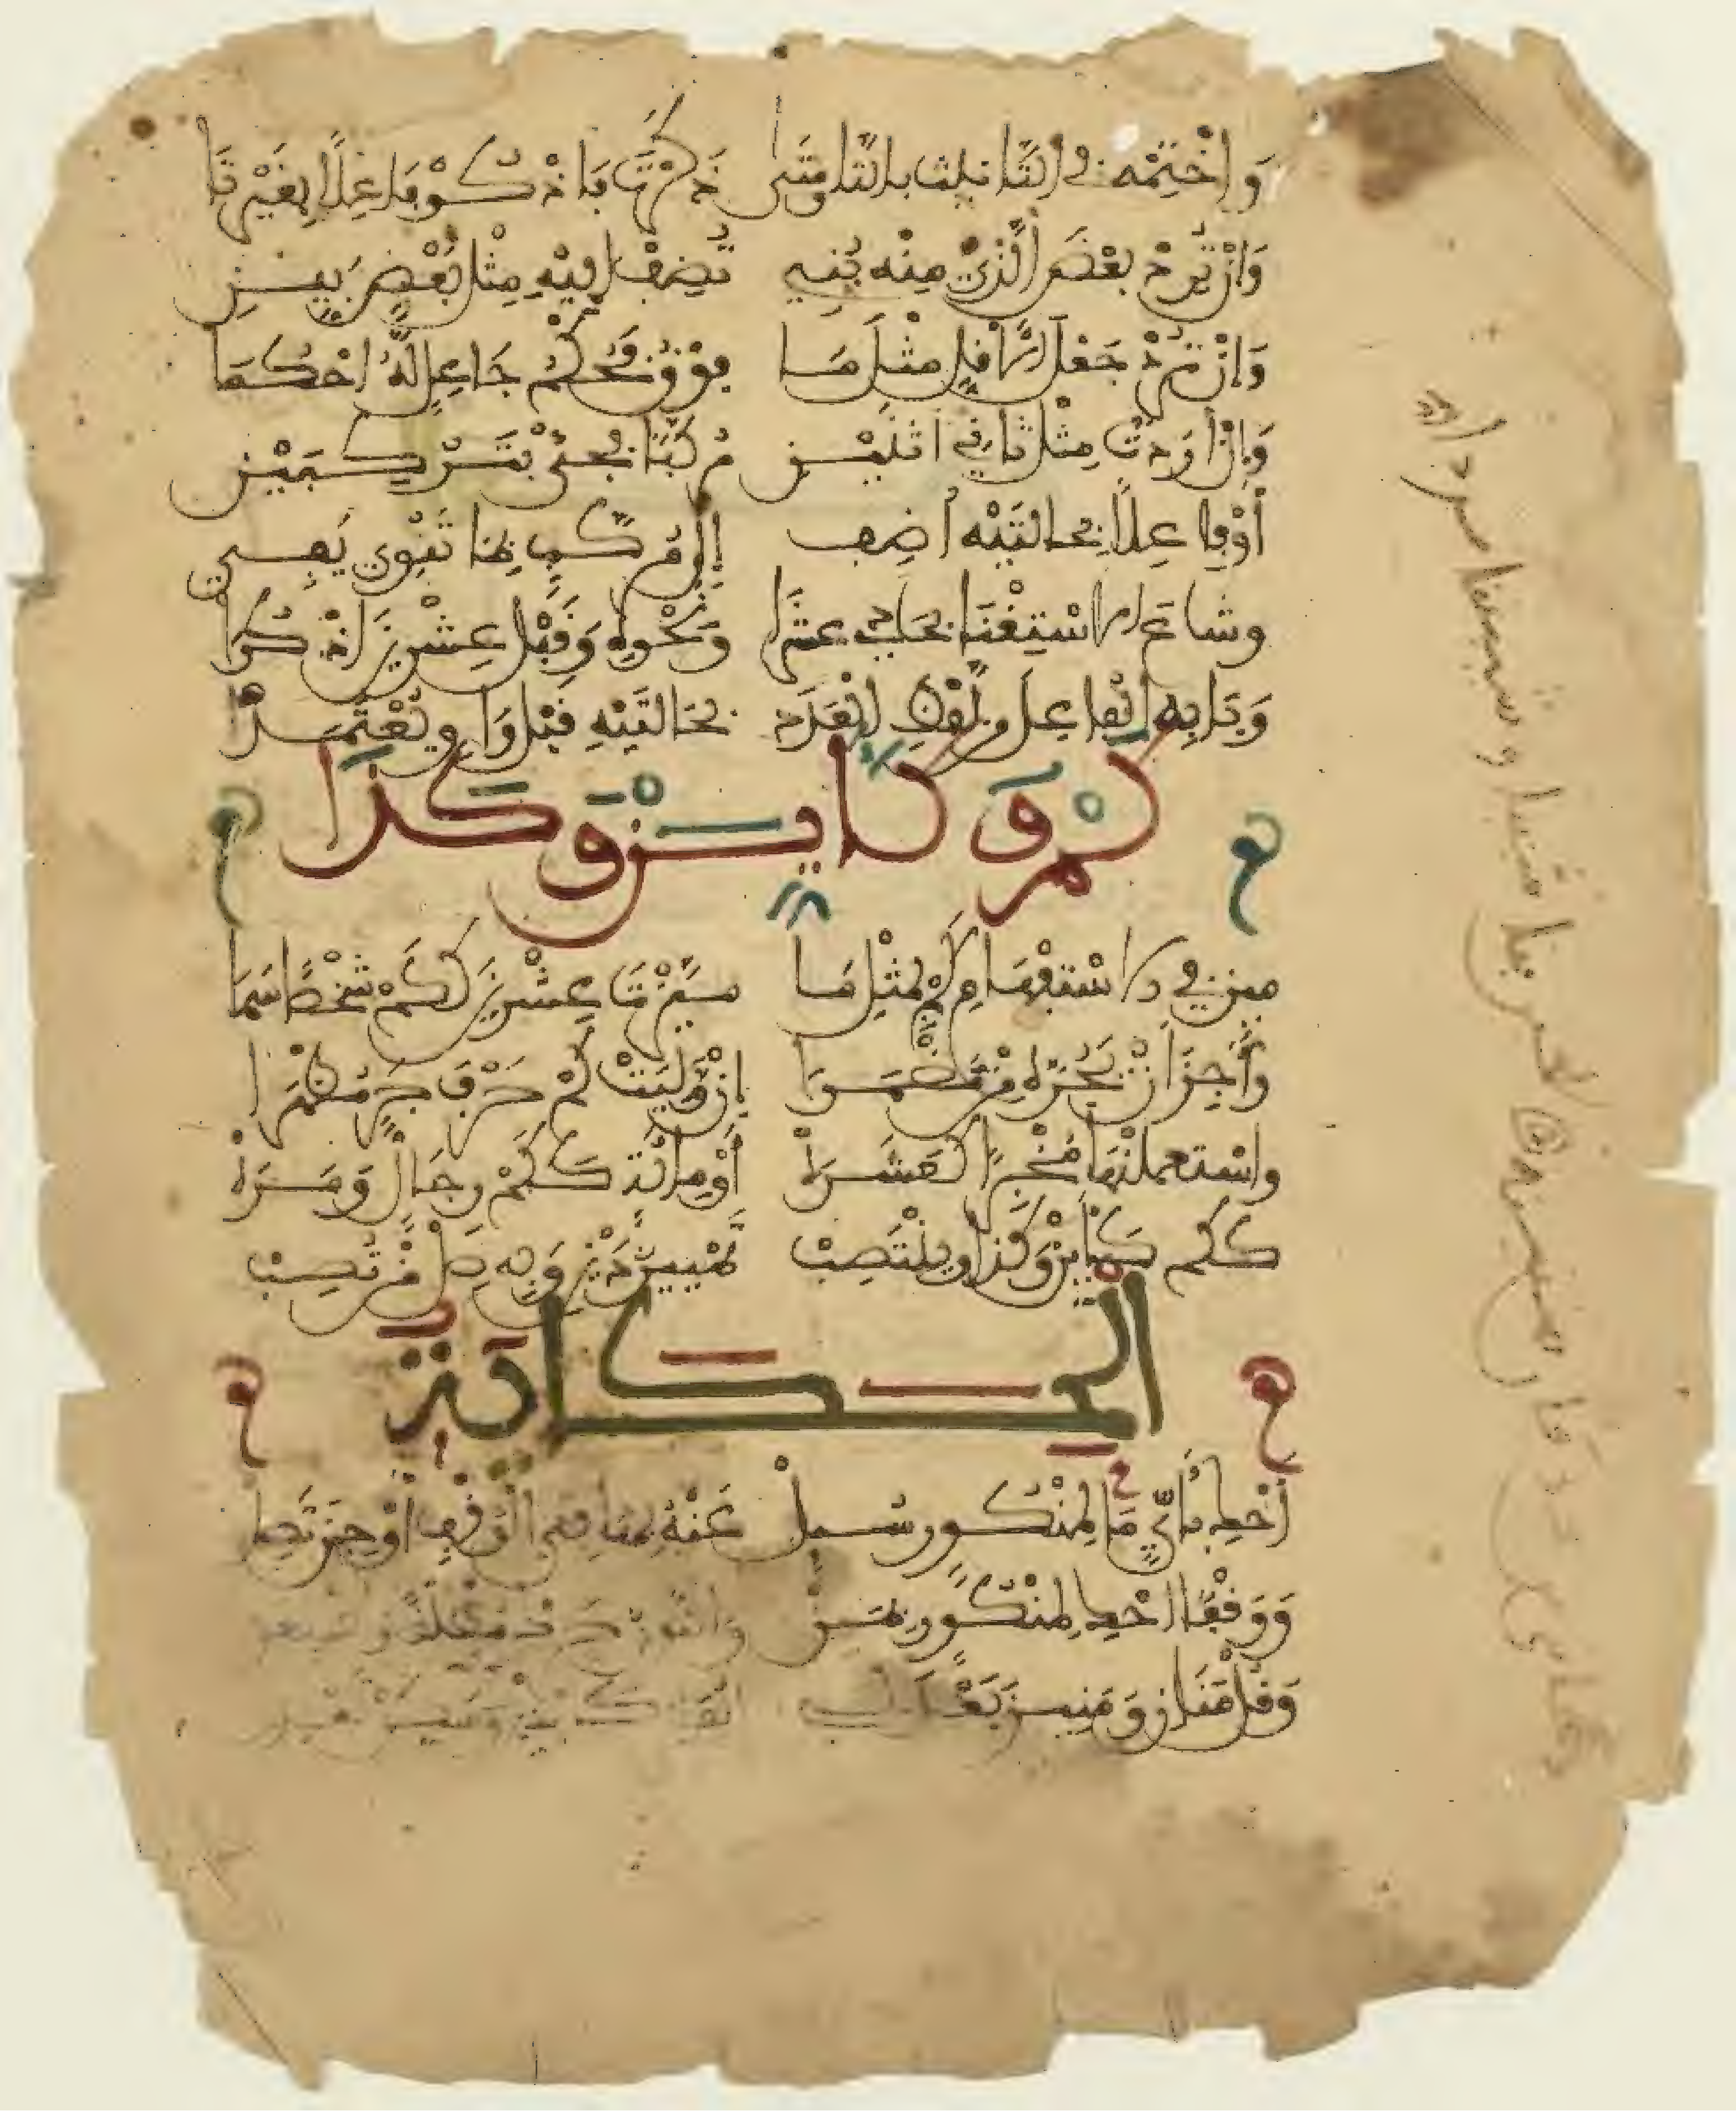 وَاخْتِمْه في التَّانيث بالتا ومَتى ذَكَّرْتَ فَاذْكُرْ فَاعِلًا بِغَيْرِ تَا
وَإنْ تُرِدْ بعْضَ الَّذِي مِنْه بُنِي تُضِفْ إلَيْهِ مِثْل بَعْضٍ بَيِّنِ
وَإنْ تُرِدْ جَعْلَ الأقلِّ مثْلَ مَا فَوْقُ فَحُكْمَ جَاعِلٍ لَهُ احْكُمَا
وَإنْ أرَدْتَ مِثْلَ ثَانِي اثْنَيْنِ مُرَكَّبًا فَجِئْ بِتَرْكِيبَيْنِ
أوْ فَاعِلًا بِحَالَتَيْهِ أضِفِ إلَى مُرَكَّبٍ بِمَا تَنْوِي يَفِي
وشاعَ الاسْتِغْنَا بِحَادِي عشَرَا وَنَحْوِهِ وَقَبْلَ عِشْرِينَ اذْكُرَا
وَبَابِهِ الْفَاعِلَ مِنْ لَفْظِ الْعَدَدْ بِحَالَتَيْهِ قَبْلَ وَاوٍ يُعْتَمَدْ
كَمْ وَكَأَيِّنْ وَكَذَا
ميز في الاسْتفْهَامِ كَمْ بِمِثْلِ مَا مَيَّزْتَ عِشْرِينَ كَكَمْ شَخْصًا سَمَا
وَأَجِزَ أنْ تَجُرَّهُ مِنْ مُضْمَرَا إنْ وَلِيَتْ كَمْ حَرْفَ جَرٍّ مُظْهَرَا
واسْتعملنْهَا مُخْبِرًا كَعَشَرَهْ أوْ مِائَةٍ كَكَمْ رِجَالٍ وَمَرَهْ
كَكَم كَأيِّنْ وَكَذَا وينْتَصِبْ تَمْيِيزُ ذَيْنِ وَبِهِ صِلْ مِنْ تُصِبْ
الْحِكَايَة
أحْكِ بأيٍّ مَا لِمَنْكُورٍ سُئِلْ عَنْهُ بِهَا فِي الْوَقْفِ أوْ حِينَ تَصِلْ
وَوَقْفًا احْكِ لِمَنْكُورٍ بِمَنْ وَالنُّونَ حَرِّكْ مُطْلَقًا
وَقُلْ مَنَانِ وَمَنَيْنِ بَعْدَ لِي